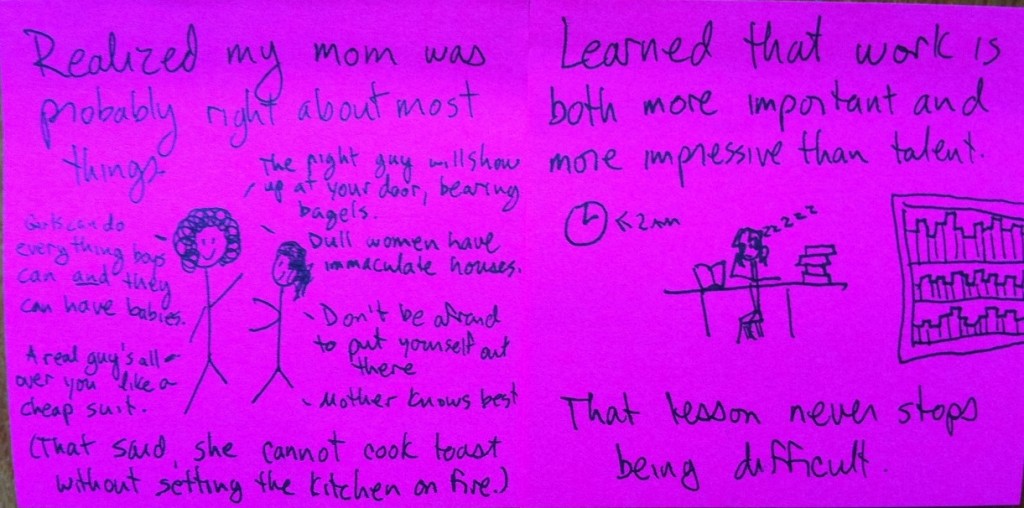 Realized my mom was
probably right about most
things.
The right guy will show
up at your door, bearing
bagels.
Girls can do
everything boys
can and they
can have babies.
Dull women have
immaculate houses.
Don't be afraid
to put yourself out
there
A real guy's all
over you like a
cheap suit.
Mother knows best
(That said, she cannot cook toast
without setting the kitchen on fire.)
Learned that work is
both more important and
more impressive than talent.
← 2 AM
zzzzz
That lesson never stops
being difficult.